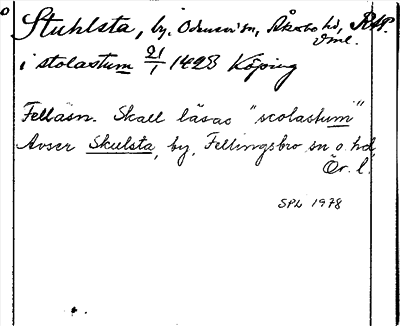 Stuhlsta, by, Odensvi sn, Åkerbo hd, RAP.
Vml.
i stolastum 21/1 1423 Köping
Felläsn. Skall läsas "scolastum"
Avser Skulsta, by, Fellingsbro sn o. hd,
Ör. l.
SPL 1978